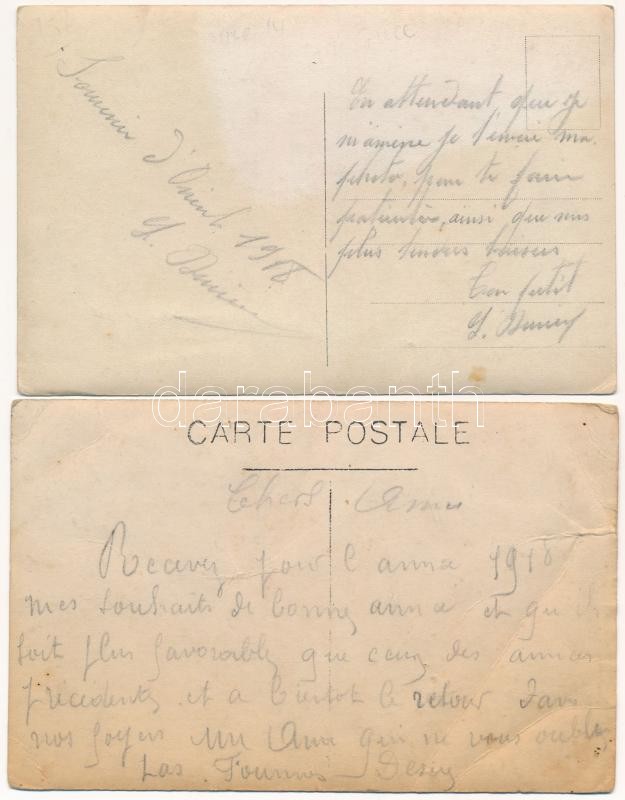 Souvenir
d'Orient 1918
En attendant, que je
m'amène je t'envoie ma
photo, pour te faire
patienter, ainsi que mes
plus tendres baisers
Ton petit
darabanth
CARTE POSTALE
Chers Amis
Recevez pour l anna 1918
mes souhaits de bonnes anna et qu ils
soit plus favorables que ceux des annas
precedentes et a bientot le retour dans
nos foyers un Ami qui ne vous oublis
pas Desir